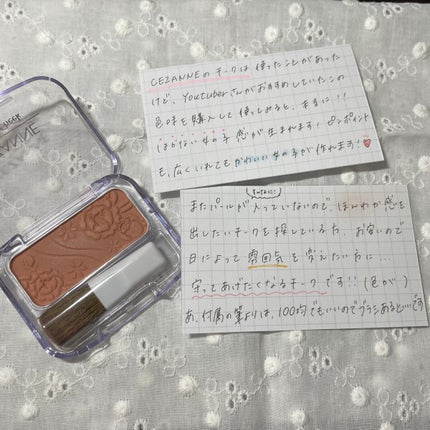 CEZANNEのチークは使ったことがあった
けど、Youtuberさんがおすすめしていたこの
色味を購入して使ってみると、まさに!!
はかない女の子感が生まれます!ピンポイント
も、広くいれてもかわいい女の子が作れます!
またパールが入っていないので、ほんわか感を
出したいチークを探している方、お安いので
日によって雰囲気を変えたい方に…
守ってあげたくなるチークです!!(色が)
あ、付属の筆よりは、100均でもいいのでブラシあると…です